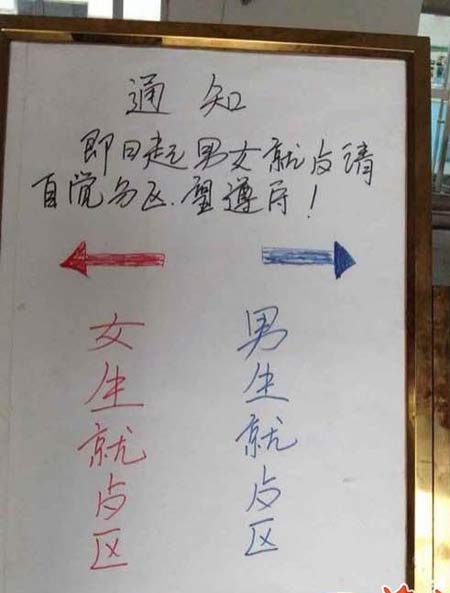 通知
即日起男女就歺请
自觉分区.望遵守!
女生就歺区
男生就歺区